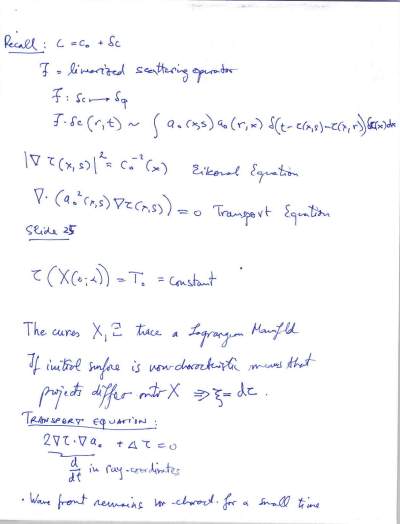 Recall : C = C₀ + δc
F = linearized scattering operator
F : δc ⟼ δφ
F·δc (r,t) ~ ∫ a₀(x,s) a₀(r,x) δ(t-τ(x,s)-τ(x,r)) δc(x) dx
|∇τ(x,s)|² = C₀⁻²(x) Eikonal Equation
∇·(a₀²(x,s)∇τ(x,s)) = 0 Transport Equation
Slide 25
τ(X(0;α)) = T₀ = constant
The curves X, Ξ trace a Lagrangian Manifold
If initial surface is non-characteristic means that
projects differ onto X ⇒ ξ = dτ.
TRANSPORT EQUATION :
2∇τ·∇a₀ + Δτ = 0
d/dt in ray-coordinates
· Wave front remains non-charact. for a small time